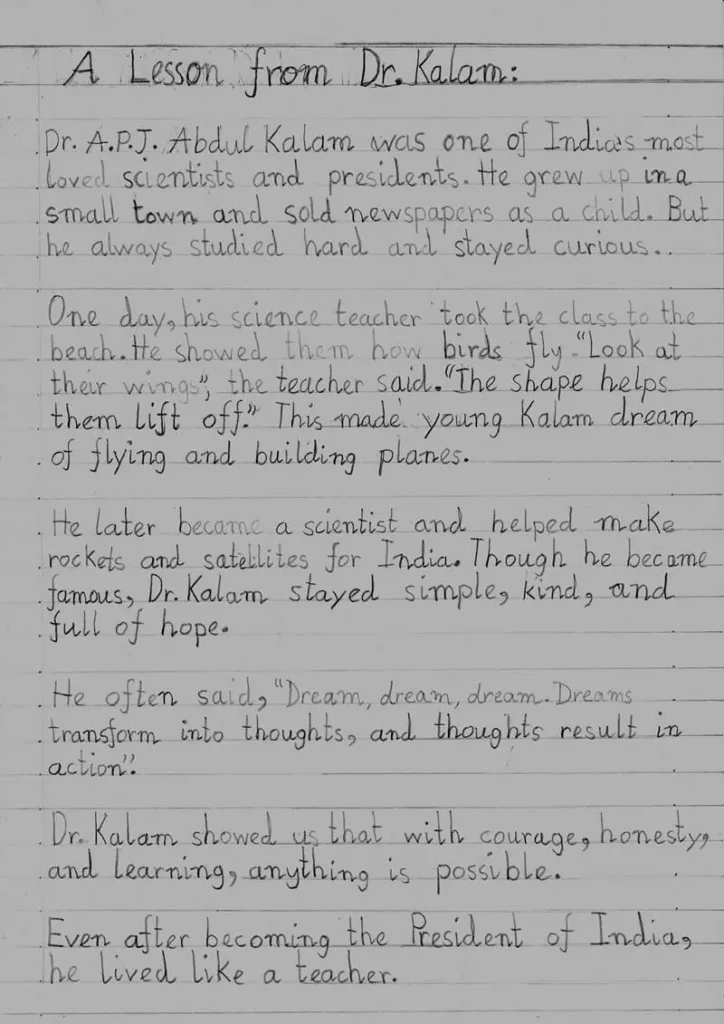 A Lesson from Dr. Kalam:
Dr. A.P.J. Abdul Kalam was one of India's most
loved scientists and presidents. He grew up in a
small town and sold newspapers as a child. But
he always studied hard and stayed curious..
One day, his science teacher took the class to the
beach. He showed them how birds fly. "Look at
their wings", the teacher said. "The shape helps
them lift off." This made young Kalam dream
of flying and building planes.
He later became a scientist and helped make
rockets and satellites for India. Though he became
famous, Dr. Kalam stayed simple, kind, and
full of hope.
He often said, "Dream, dream, dream. Dreams
transform into thoughts, and thoughts result in
action".
Dr. Kalam showed us that with courage, honesty,
and learning, anything is possible.
Even after becoming the President of India,
he lived like a teacher.